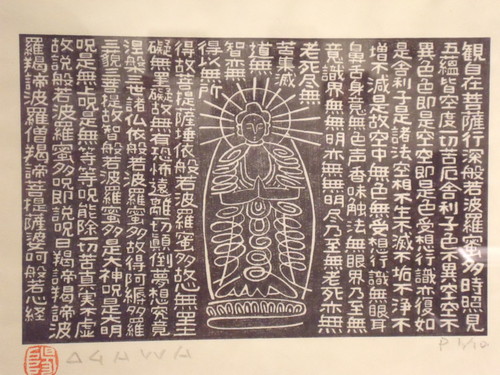 観自在菩薩行深般若波羅蜜多時照見
五蘊皆空度一切苦厄舎利子色不異空空不
異色色即是空空即是色受想行識亦復如
是舎利子是諸法空相不生不滅不垢不浄不
増不減是故空中無色無受想行識無眼耳
鼻舌身意無色声香味触法無眼界乃至無
意識界無無明亦無無明尽乃至無老死亦無
老死尽無
苦集滅
道無
智亦無
得以無所
得故菩提薩埵依般若波羅蜜多故心無罣
礙無罣礙故無有恐怖遠離一切顛倒夢想究竟
涅槃三世諸仏依般若波羅蜜多故得阿耨多羅
三藐三菩提故知般若波羅蜜多是大神呪是大明
呪是無上呪是無等等呪能除一切苦真実不虚
故説般若波羅蜜多呪即説呪曰羯諦羯諦波
羅羯諦波羅僧羯諦菩提薩婆呵般若心経
AGAWA